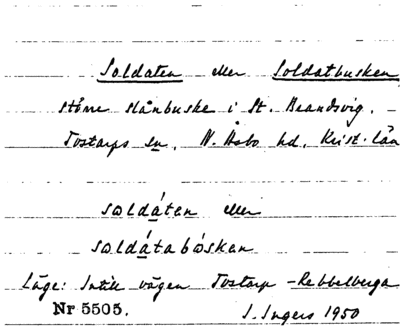 Soldaten eller Soldatbusken
större slånbuske i St. Brandsvig.
Tostarps sn, N. Åsbo hd, Krist. län
soldáten eller
soldátabósken
Läge: Intill vägen Tostarp - Rebbelberga
Nr 5505. I. Ingers 1950